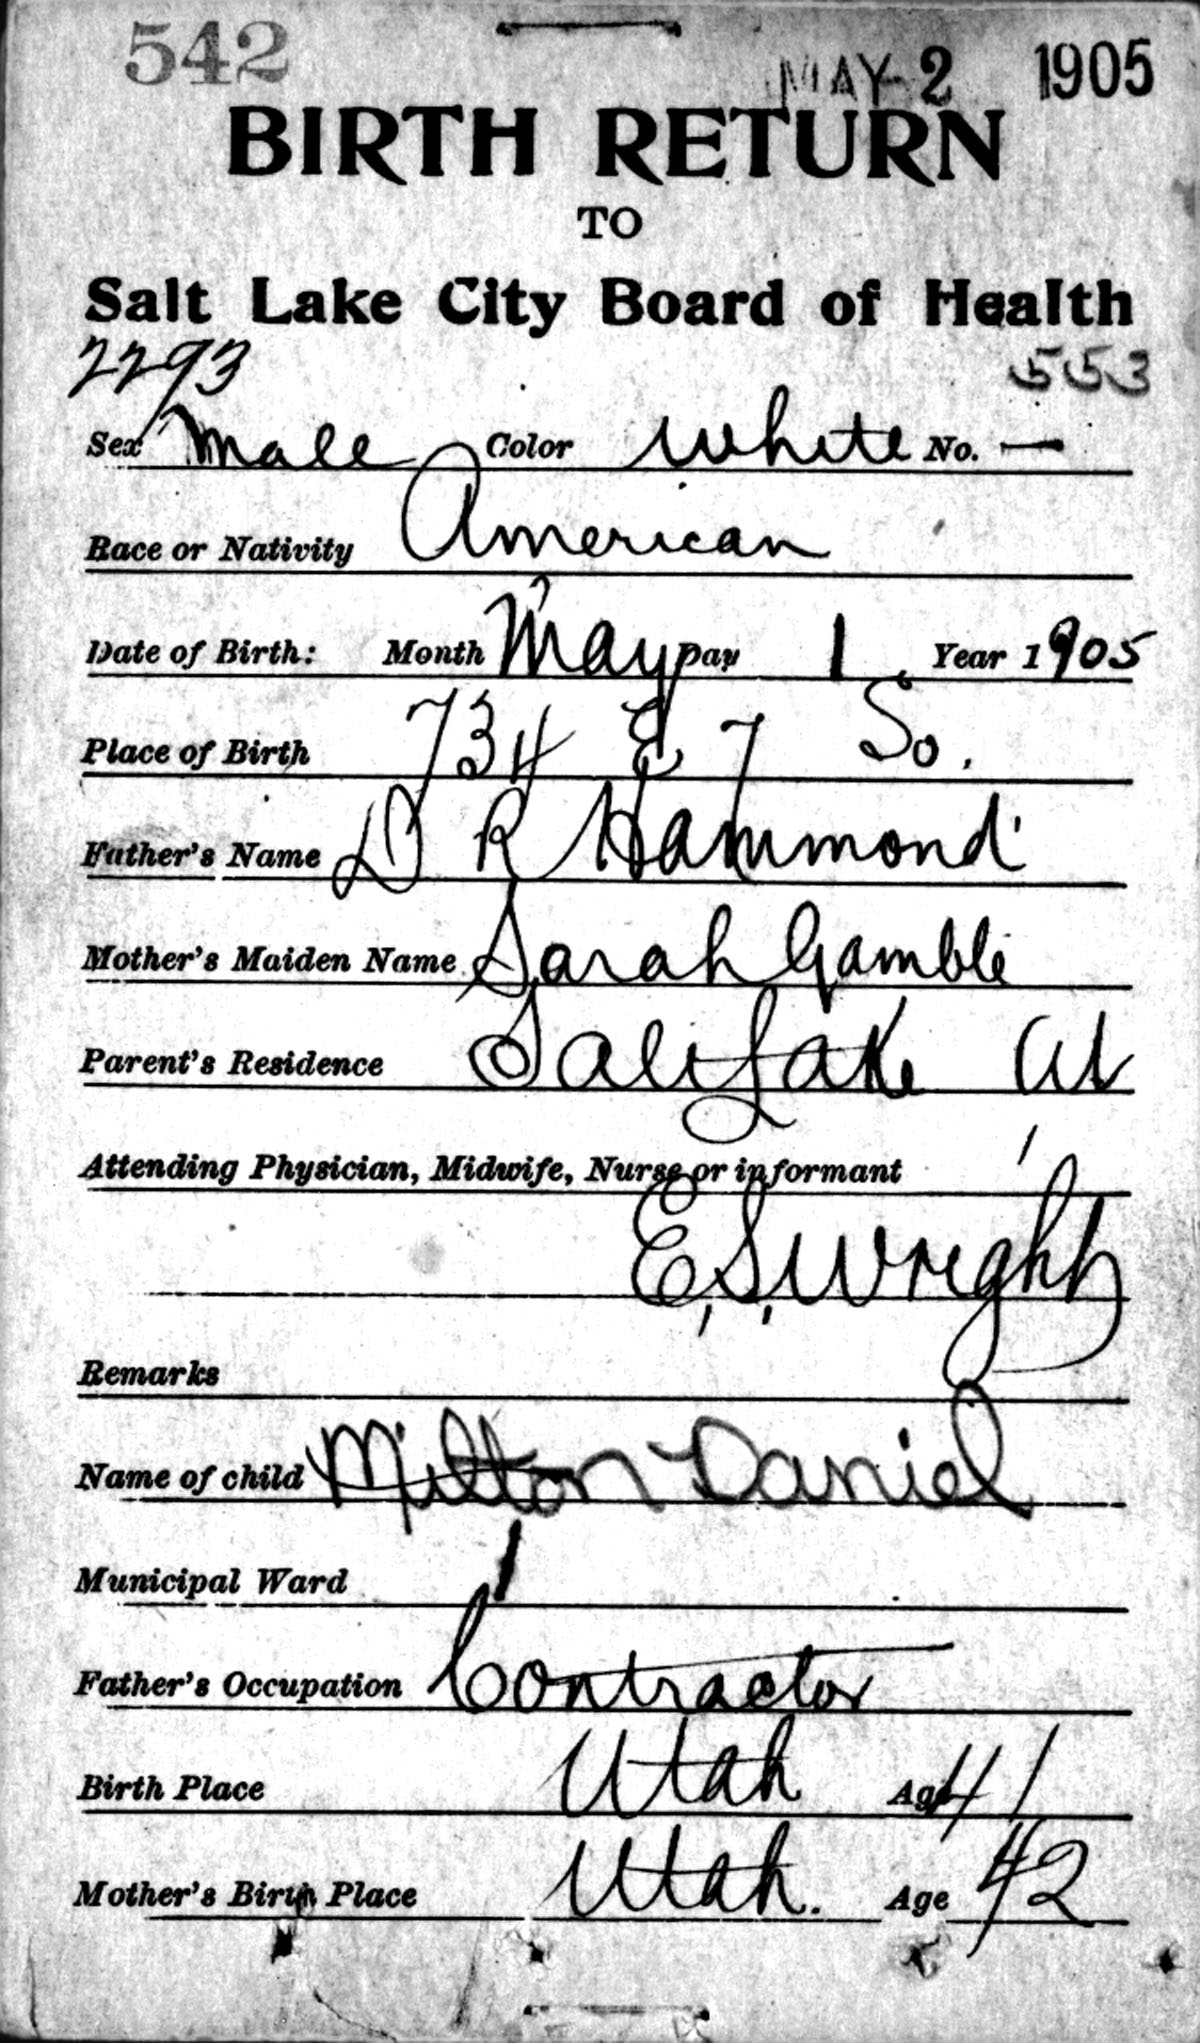 542 MAY 2 1905
BIRTH RETURN
TO
Salt Lake City Board of Health
2293 553
Sex Male Color White No. —
Race or Nativity American
Date of Birth: Month May Day 1 Year 1905
Place of Birth 734 E 7 So.
Father's Name D R Hammond
Mother's Maiden Name Sarah Gamble
Parent's Residence Salt Lake
Attending Physician, Midwife, Nurse or informant
E. S. Wright
Remarks
Name of child Milton Daniel
Municipal Ward 1
Father's Occupation Contractor
Birth Place Utah Age 41
Mother's Birth Place Utah. Age 42